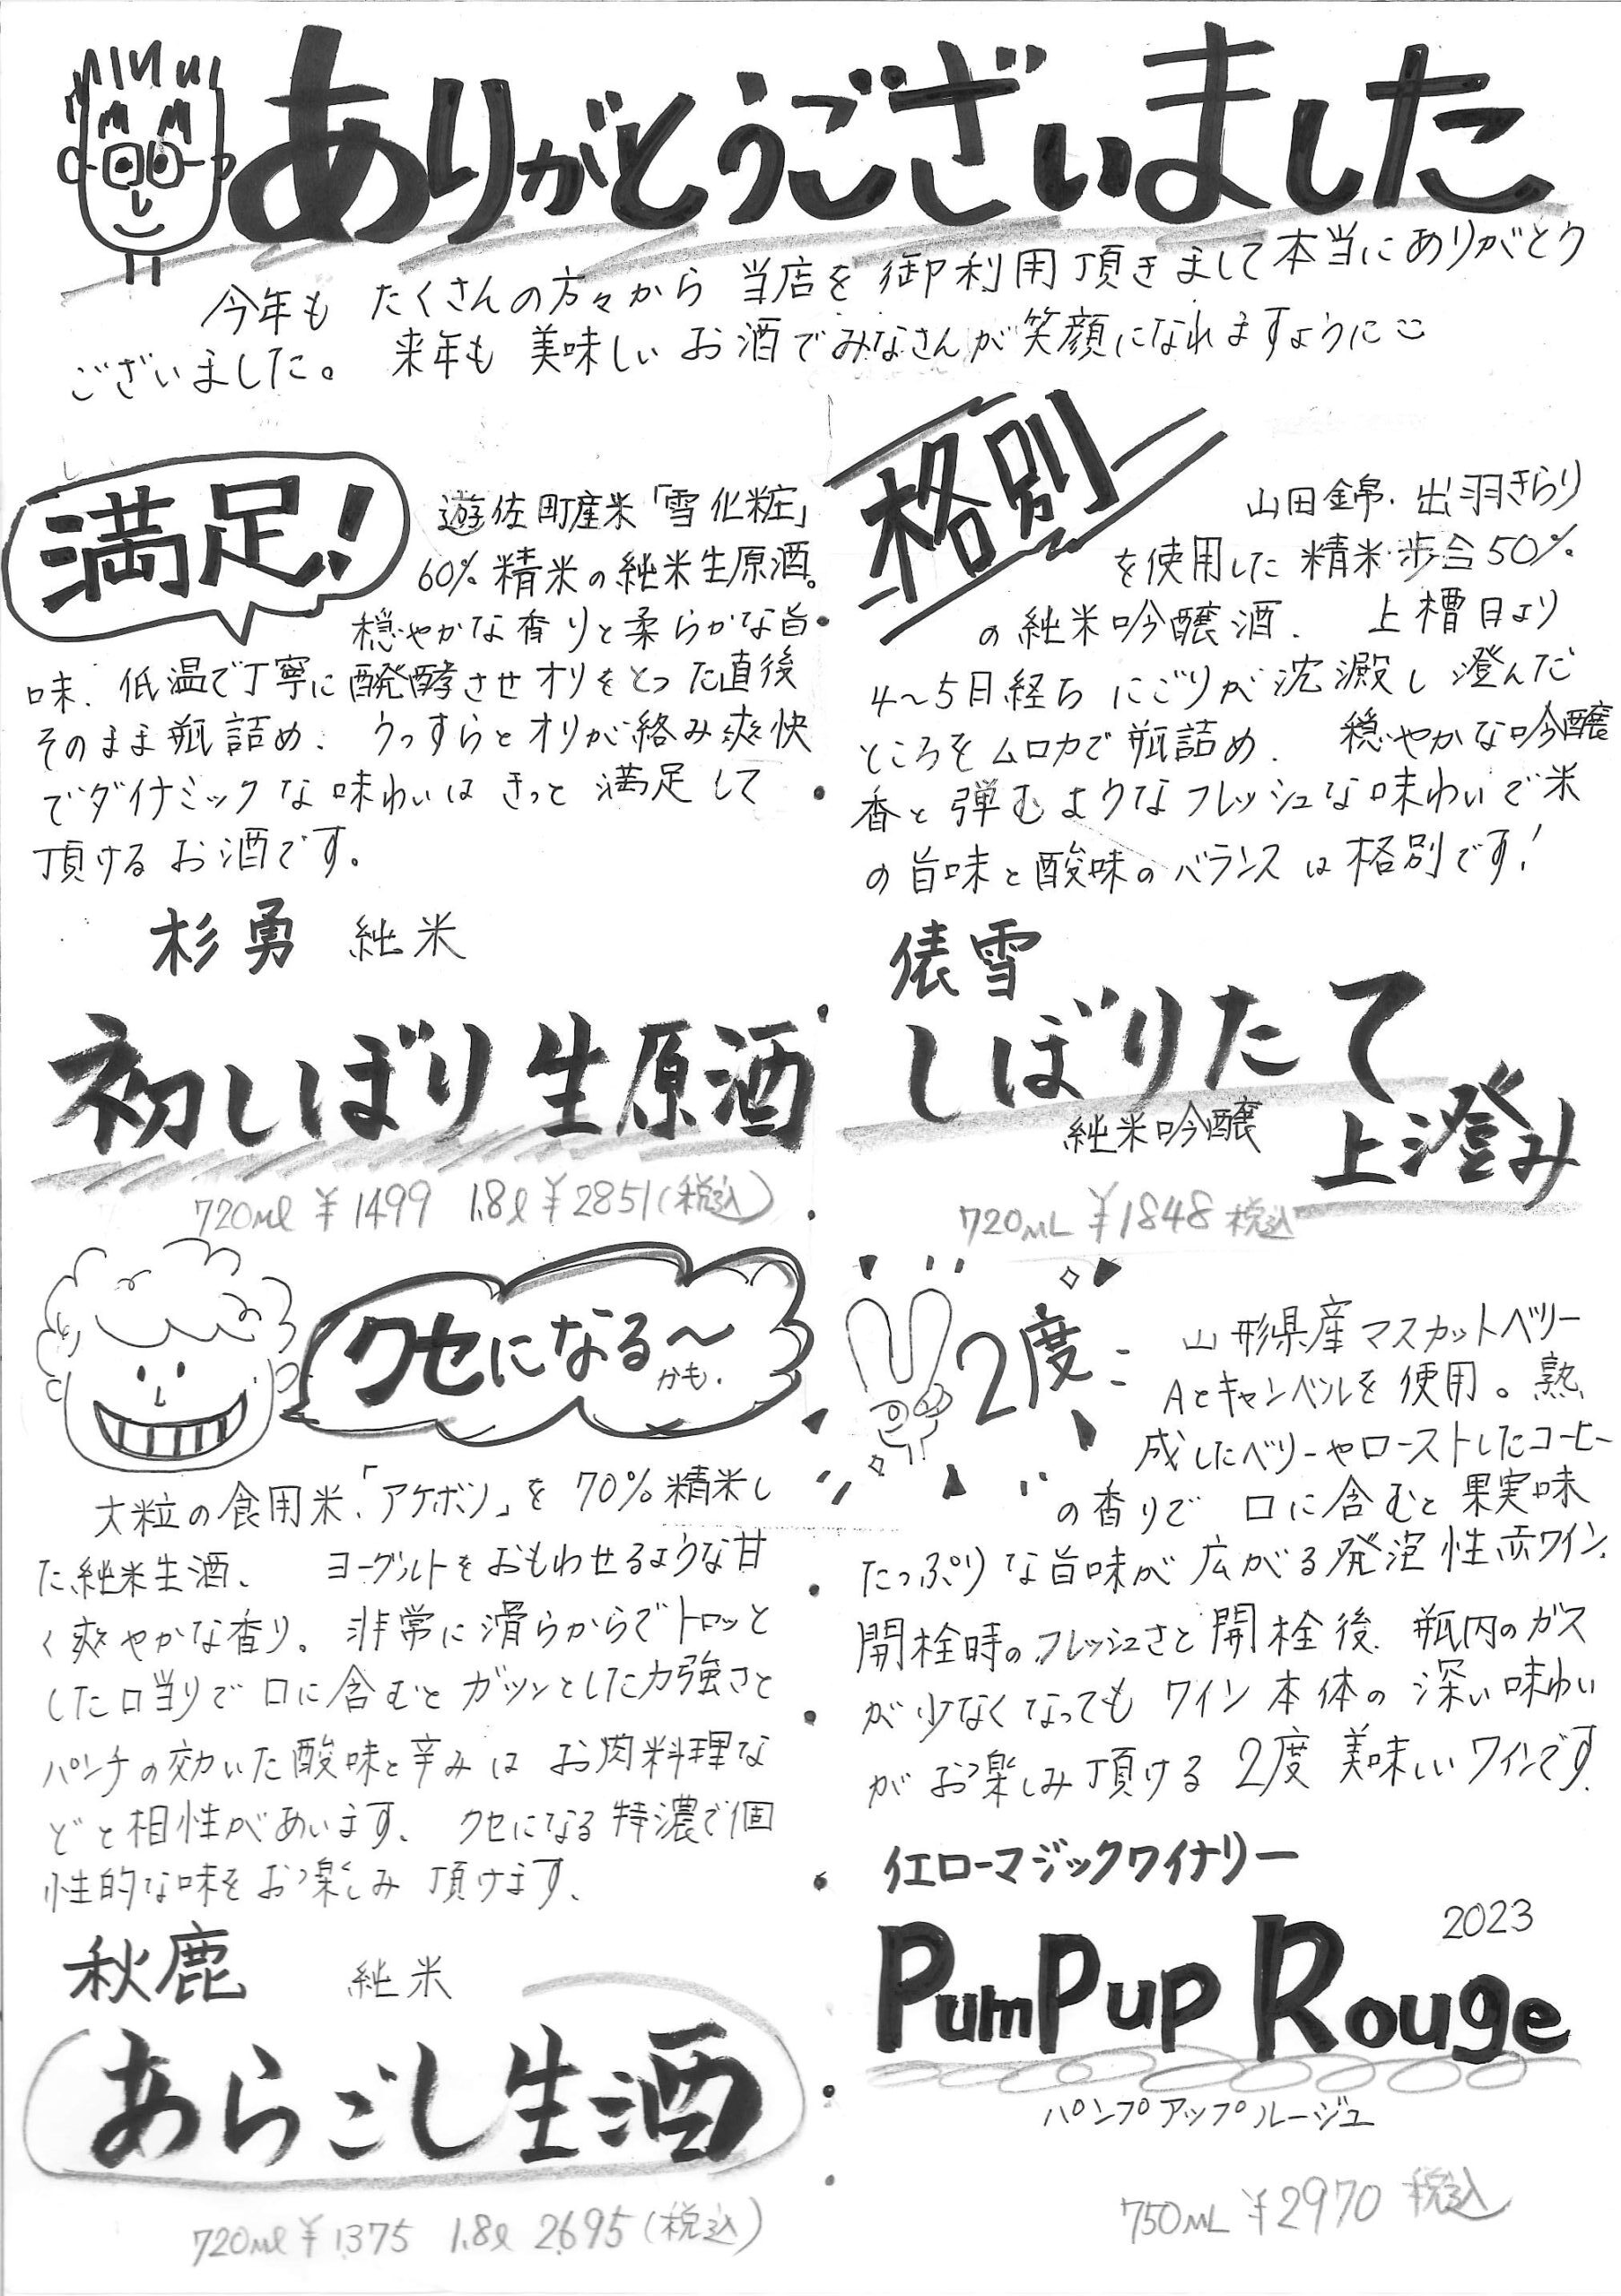 ありがとうございました
今年も たくさんの方々から 当店を 御利用頂きまして本当にありがとう
ございました。 来年も 美味しい お酒でみなさんが笑顔になれますように
満足!
遊佐町産米「雪化粧」
60%精米の純米生原酒。
穏やかな香りと柔らかな旨
味、低温で丁寧に醗酵させオリをとった直後
そのまま瓶詰め、 うっすらとオリが絡み爽快
でダイナミックな味わいは きっと 満足して
頂ける お酒です。
杉勇 純米
初しぼり生原酒
720ml ¥1499 1.8l ¥2851(税込)
格別
山田錦、出羽きらり
を使用した 精米歩合50%
の純米吟醸酒、 上槽日より
4〜5日経ち にごりが沈澱し 澄んだ
ところをムロカで瓶詰め、 穏やかな吟醸
香と弾むようなフレッシュな味わいで米
の旨味と酸味のバランスは格別です!
俵雪
しぼりたて
純米吟醸
上澄み
720mL ¥1848 税込
クセになる〜
かも.
大粒の食用米、「アケボノ」を 70%精米し
た純米生酒、 ヨーグルトをおもわせるような甘
く爽やかな香り。非常に滑らからでトロッと
した口当りで 口に含むとガツンとした力強さと
パンチの効いた酸味と辛みは お肉料理な
どと相性があいます、 クセになる特濃で個
性的な味をお楽しみ 頂けます、
秋鹿 純米
あらごし生酒
720ml ¥1,375 1.8l 2,695(税込)
2度
山形県産マスカットベリー
Aとキャンベルを使用。熟
成したベリーやローストしたコーヒー
の香りで 口に含むと果実味
たっぷりな旨味が広がる発泡性赤ワイン、
開栓時のフレッシュさと開栓後、瓶内のガス
が少なくなってもワイン本体の深い味わい
がお楽しみ頂ける2度美味しいワインです、
イエローマジックワイナリー
2023
PumPup Rouge
パンプアップルージュ
750mL ¥2970 税込